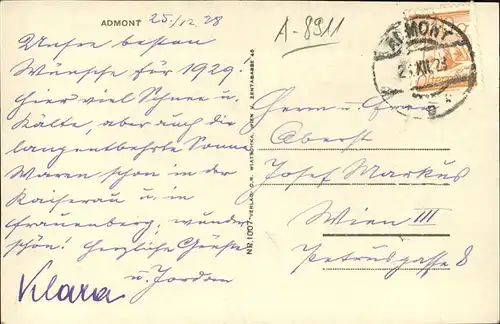 ADMONT
25./12.28
A-8911
Unsere besten
Wünsche für 1929!
Hier viel Schnee u.
Kälte, aber auch die
langentbehrte Sonne
Waren schon in der
Kaiserau u. in
Frauenberg, wunder
schön! Herzliche Grüße
Klara u. Jordan
NR. 1007 VERLAG WIEN V. ZENTAGASSE 45
ADMONT
XII.28
Herrn u. Frau
Oberst
Josef Markus
Wien III
Petrusgasse 8